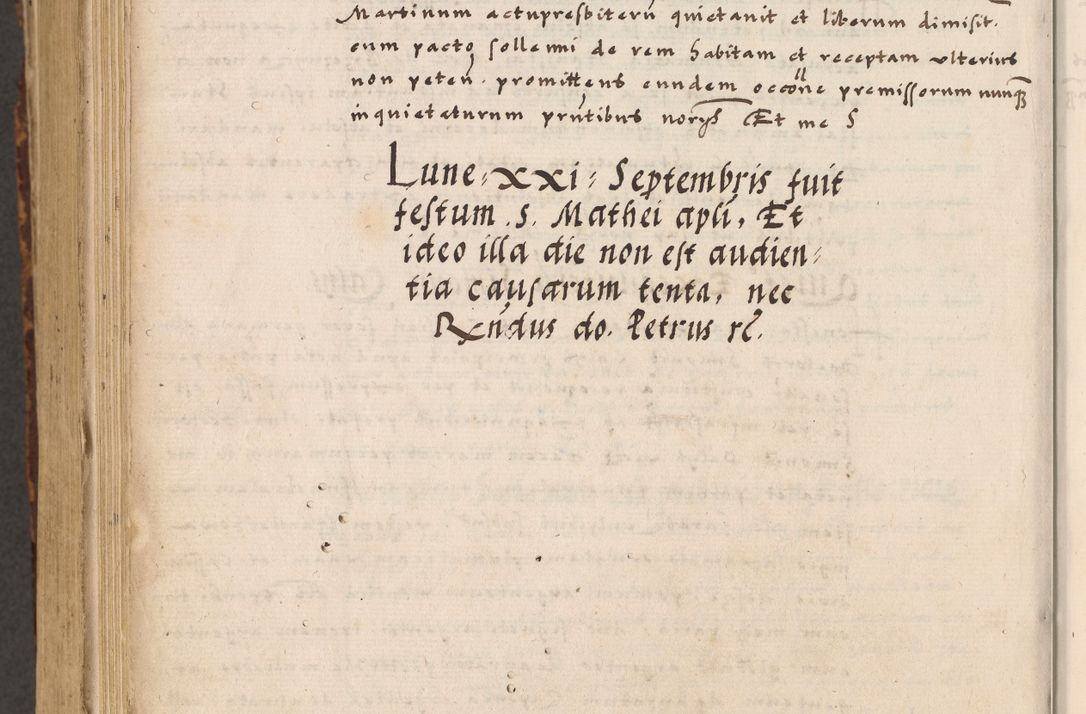 Martinum actupresbiterũ quietauit et liberum dimisit.
eum pacto sollemni de rem habitam et receptam vlterius
non peteñ. promittens eundem occoñe premissorum nunqȝ
inquietaturum pñtibus norijs Et me S
Lune xxi Septembris fuit
festum .S. Mathei apli, Et
ideo illa die non est audien-
tia causarum tenta, nec
Rñdus do. Petrus rc̃.